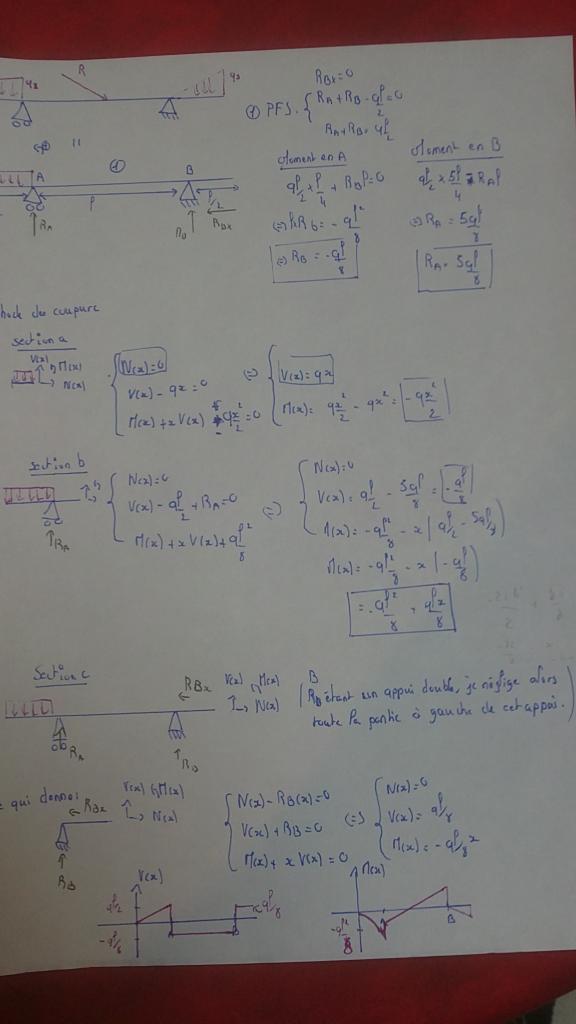 q2
R
q2
R_Bx = 0
① PFS. { R_A + R_B - qℓ/2 = 0
R_A + R_B = qℓ/2
①
A
B
ℓ
ℓ/2
R_A
R_B
R_Bx
Moment en A
qℓ/2 × ℓ/4 + R_B ℓ = 0
⇔ ℓR_B = - qℓ²/8
⇔ R_B = - qℓ/8
Moment en B
qℓ/2 × 5ℓ/4 = R_A ℓ
⇔ R_A = 5qℓ/8
R_A = 5qℓ/8
hode des coupure
section a
V(x) M(x)
N(x)
N(x) = 0
V(x) - qx = 0
M(x) + x V(x) qx²/2 = 0
⇔
V(x) = qx
M(x) = qx²/2 - qx² = - qx²/2
section b
R_A
N(x) = 0
V(x) - qℓ/2 + R_A = 0
M(x) + x V(x) + qℓ²/8
⇔
N(x) = 0
V(x) = qℓ/2 - 5qℓ/8 = - qℓ/8
M(x) = - qℓ²/8 - x ( qℓ/2 - 5qℓ/8 )
M(x) = - qℓ²/8 - x ( - qℓ/8 )
= - qℓ²/8 + qℓx/8
Section c
R_Bx
V(x) M(x)
N(x)
R_A
R_B
B
( étant un appui double, je néglige alors
toute la partie à gauche de cet appui. )
e qui donne:
V(x) M(x)
R_Bx
N(x)
R_B
N(x) - R_B(x) = 0
V(x) + R_B = 0
M(x) + x V(x) = 0
⇔
N(x) = 0
V(x) = qℓ/8
M(x) = - qℓ/8 x
V(x)
qℓ/2
- qℓ/8
qℓ/8
M(x)
- qℓ²/8
B